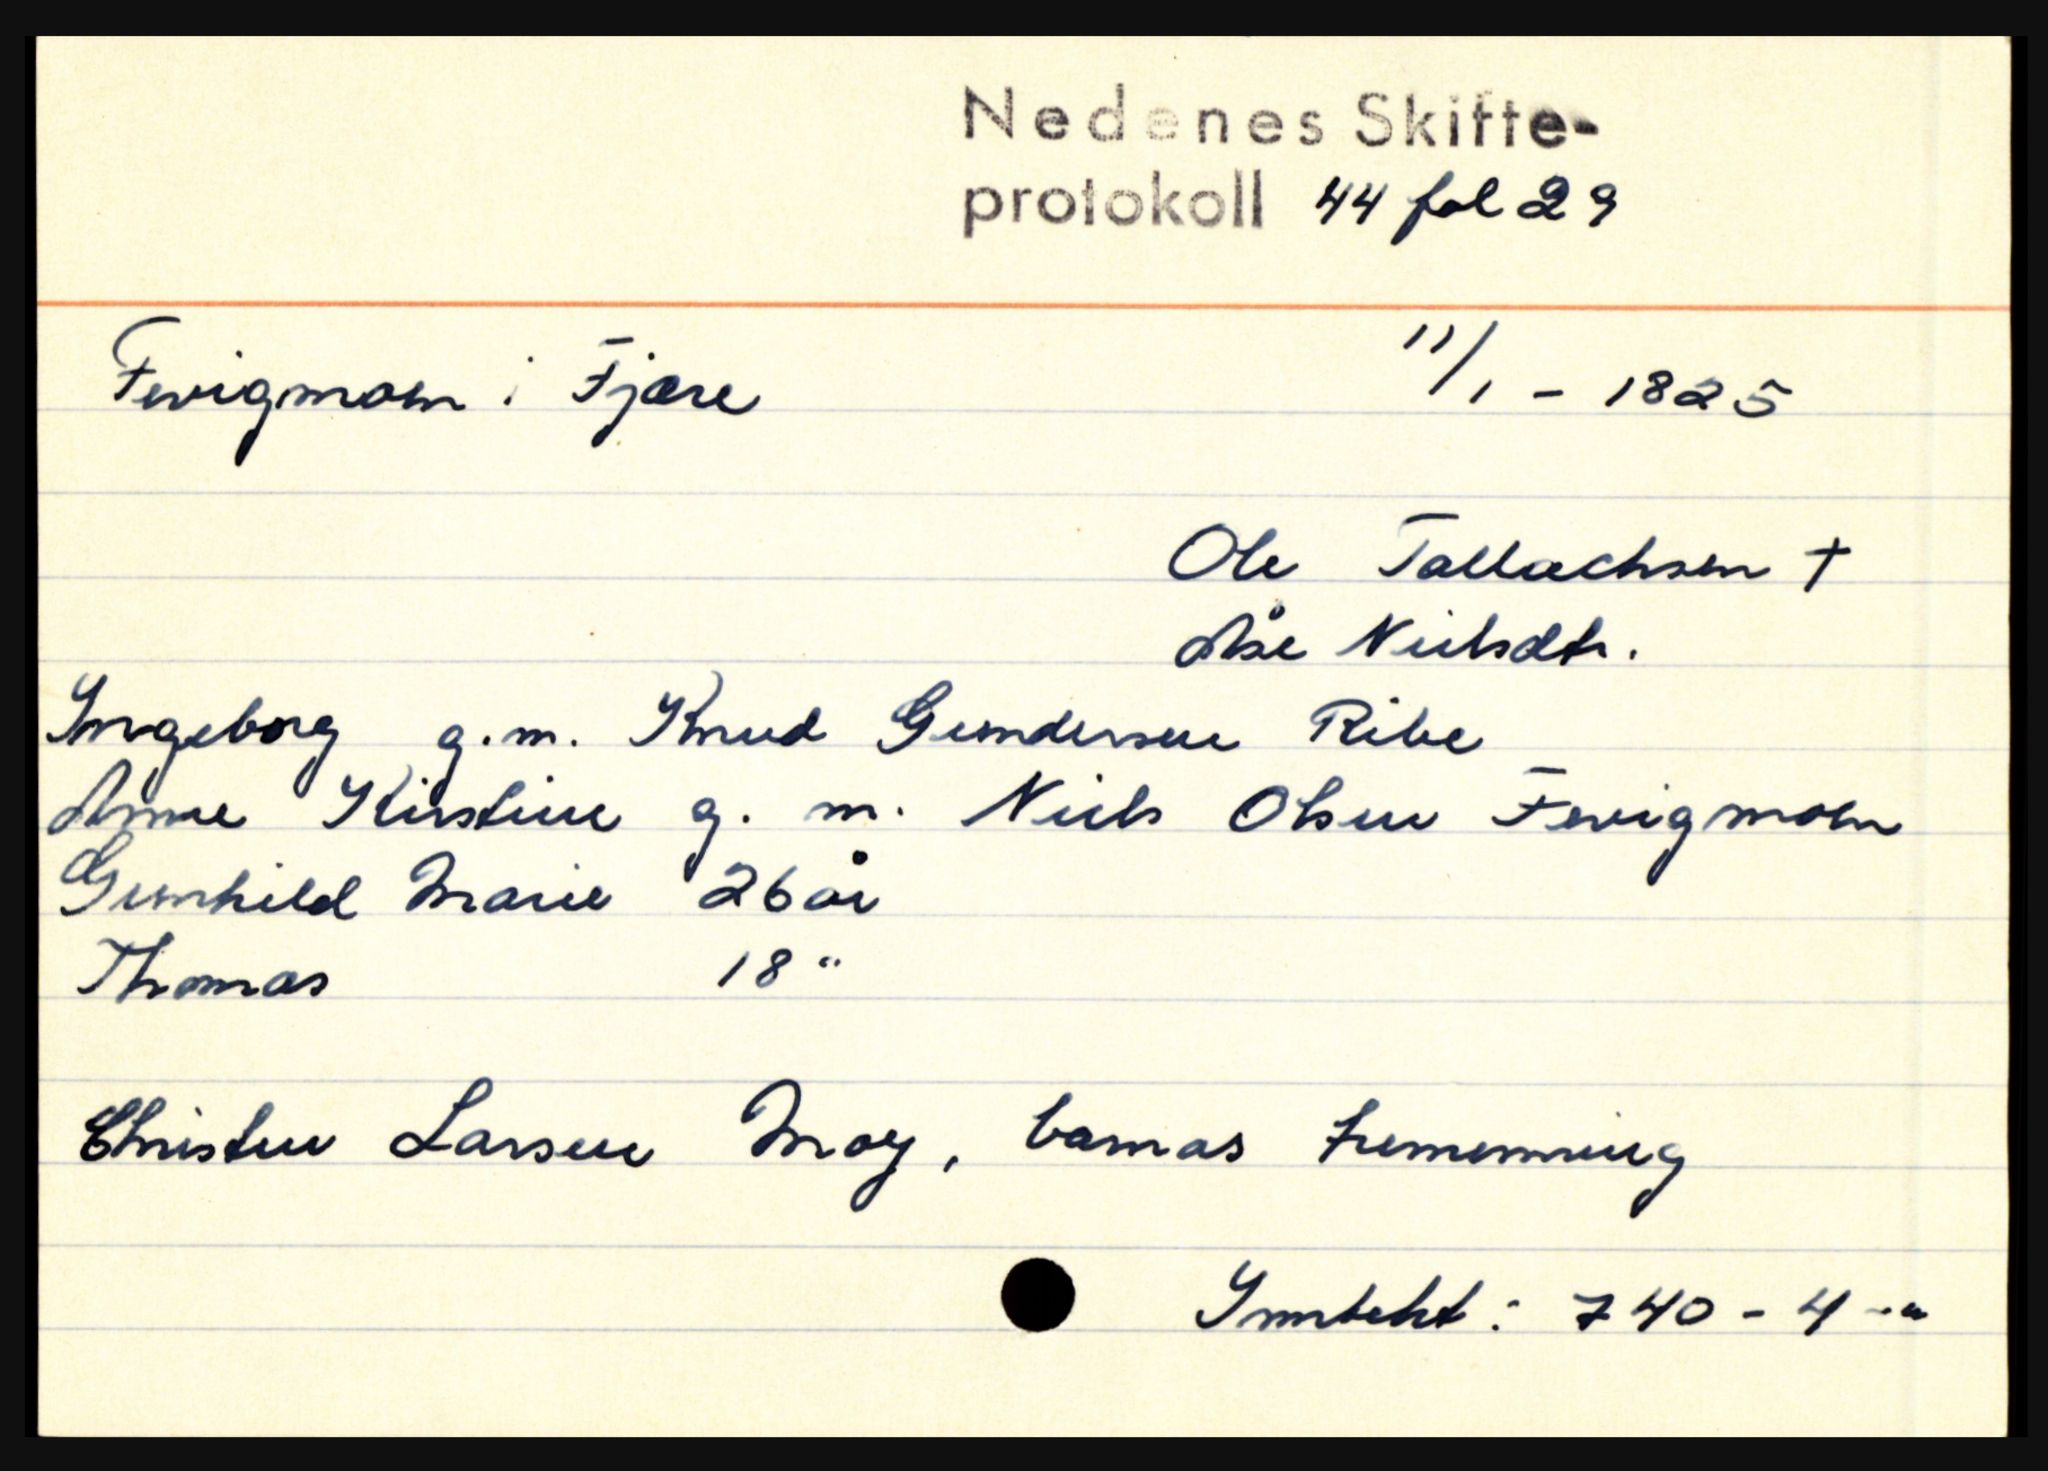 Nedenes Skifte-
protokoll 44 fol 29
Fevigmoen i Fjære 11/1 - 1825
Ole Tallachsen †
Åse Nielsdtr.
Ingeborg g.m. Knud Gundersen Ribe
Anne Kirstine g. m. Niels Olsen Fevigmoen
Gunhild Marie 26 år
Thomas 18 "
Christen Larsen Moy, barnas fremenning
Inntekt: 740 - 4 - "